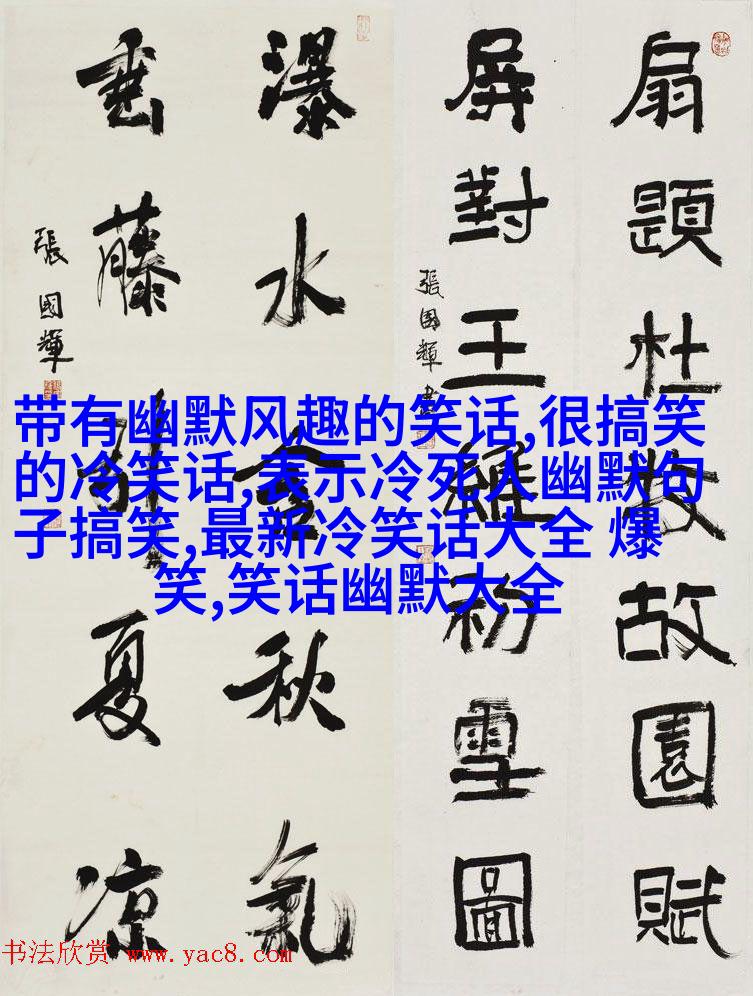 扇題杜牧故園賦
屏對王維初雪圖
張國輝書
瀑水含秋氣
垂藤引夏凉
張國輝
带有幽默风趣的笑话,很搞笑
的冷笑话,表示冷死人幽默句
子搞笑,最新冷笑话大全 爆
笑,笑话幽默大全
书法欣赏 www.yac8.com